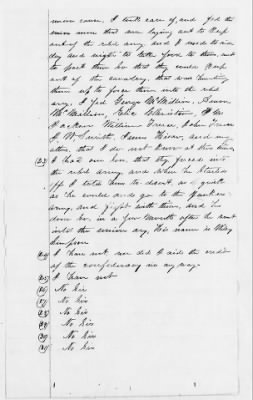 union cause. I took care of and fed the
union men that was laying out to keep
out of the rebel army and I rode to in a
day and night to take food to them, and
to post them so that they could keep
out of the cavalry, that was hunting
them up to force them into the rebel
army. I fed George McMillin, Aaron
McMillin,
Jackson William
W. and any
other that I do not know at this time
(23) I had one son, that they forced into
the rebel army and when he started
off I told him to desert, as quick
as he could and go to the Yankee
army, and fight with them, and he
done so, in a few months after he went
into the union army, His name is
Simpson
(24) I have not nor did I aid the credit
of the confederacy no any way.
(25) I have not
(26) No Sir
(27) No Sir
(28) No Sir
(29) No Sir
(30) No Sir
(31) No Sir